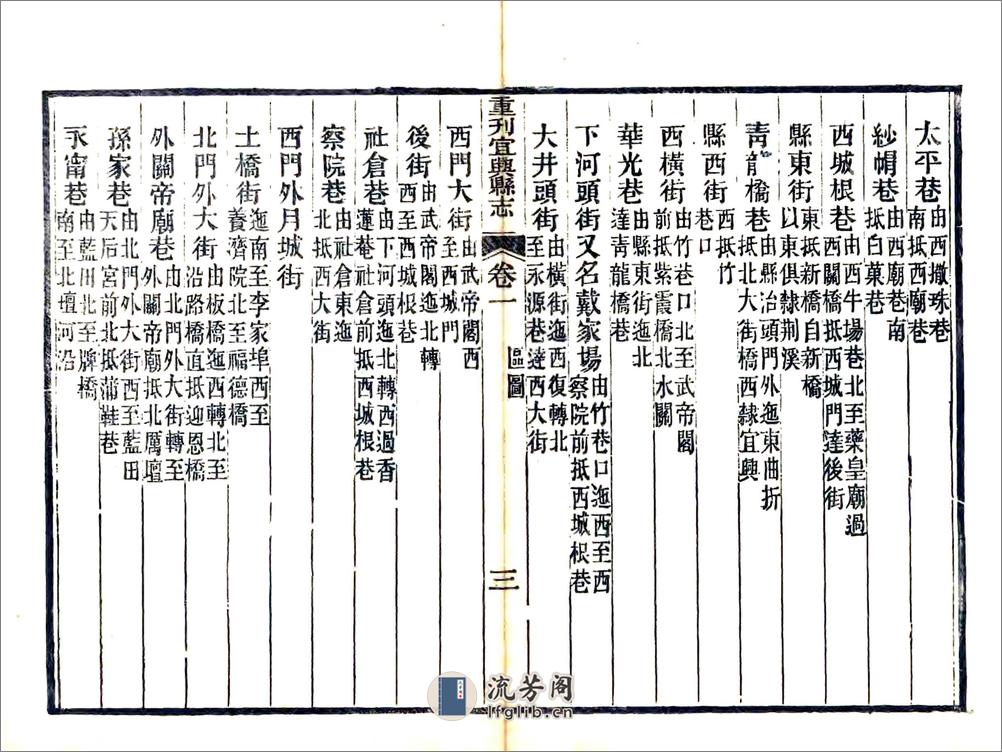 太平巷 由西撒珠巷南抵西廟巷
紗帽巷 由西廟巷南抵白菓巷
西城根巷 由西牛場巷北至藥皇廟過西關橋抵西城門達後街
縣東街 東抵新橋自新橋以東俱隸荆溪
青龍橋巷 由縣治頭門外迤東曲折抵北大街橋西隸宜興
縣西街 西抵竹巷口
西橫街 由竹巷口北至武帝閣前抵紫霞橋北水關
華光巷 由縣東街迤北達青龍橋巷
下河頭街又名戴家場 由竹巷口迤西至西察院前抵西城根巷
大井頭街 由橫街迤西復轉北至永源巷達西大街
重刊宜興縣志 卷一 區圖 三
西門大街 由武帝閣西至西城門
後街 由武帝閣迤北轉西至西城根巷
社倉巷 由下河頭迤北轉西過香蓮菴社倉前抵西城根巷
察院巷 由社倉東迤北抵西大街
西門外月城街
土橋街 迤南至李家埠西至養濟院北至福德橋
北門外大街 由板橋迤西轉北至沿路橋直抵迎恩橋
外關帝廟巷 由北門外大街轉至外關帝廟抵北厲壇
孫家巷 由北門外大街西至藍田天后宮前北抵蒲鞋巷
永甯巷 由藍田北至牌橋南至北壇河沿
流芳阁
lfglib.cn